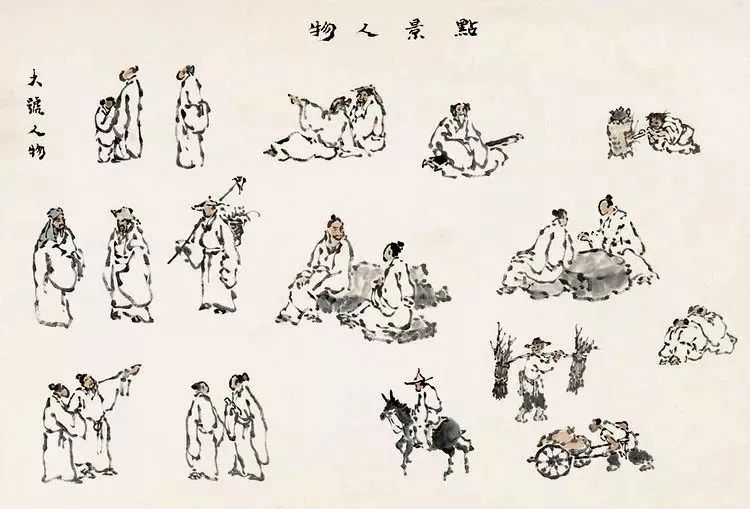 點景人物
大號人物